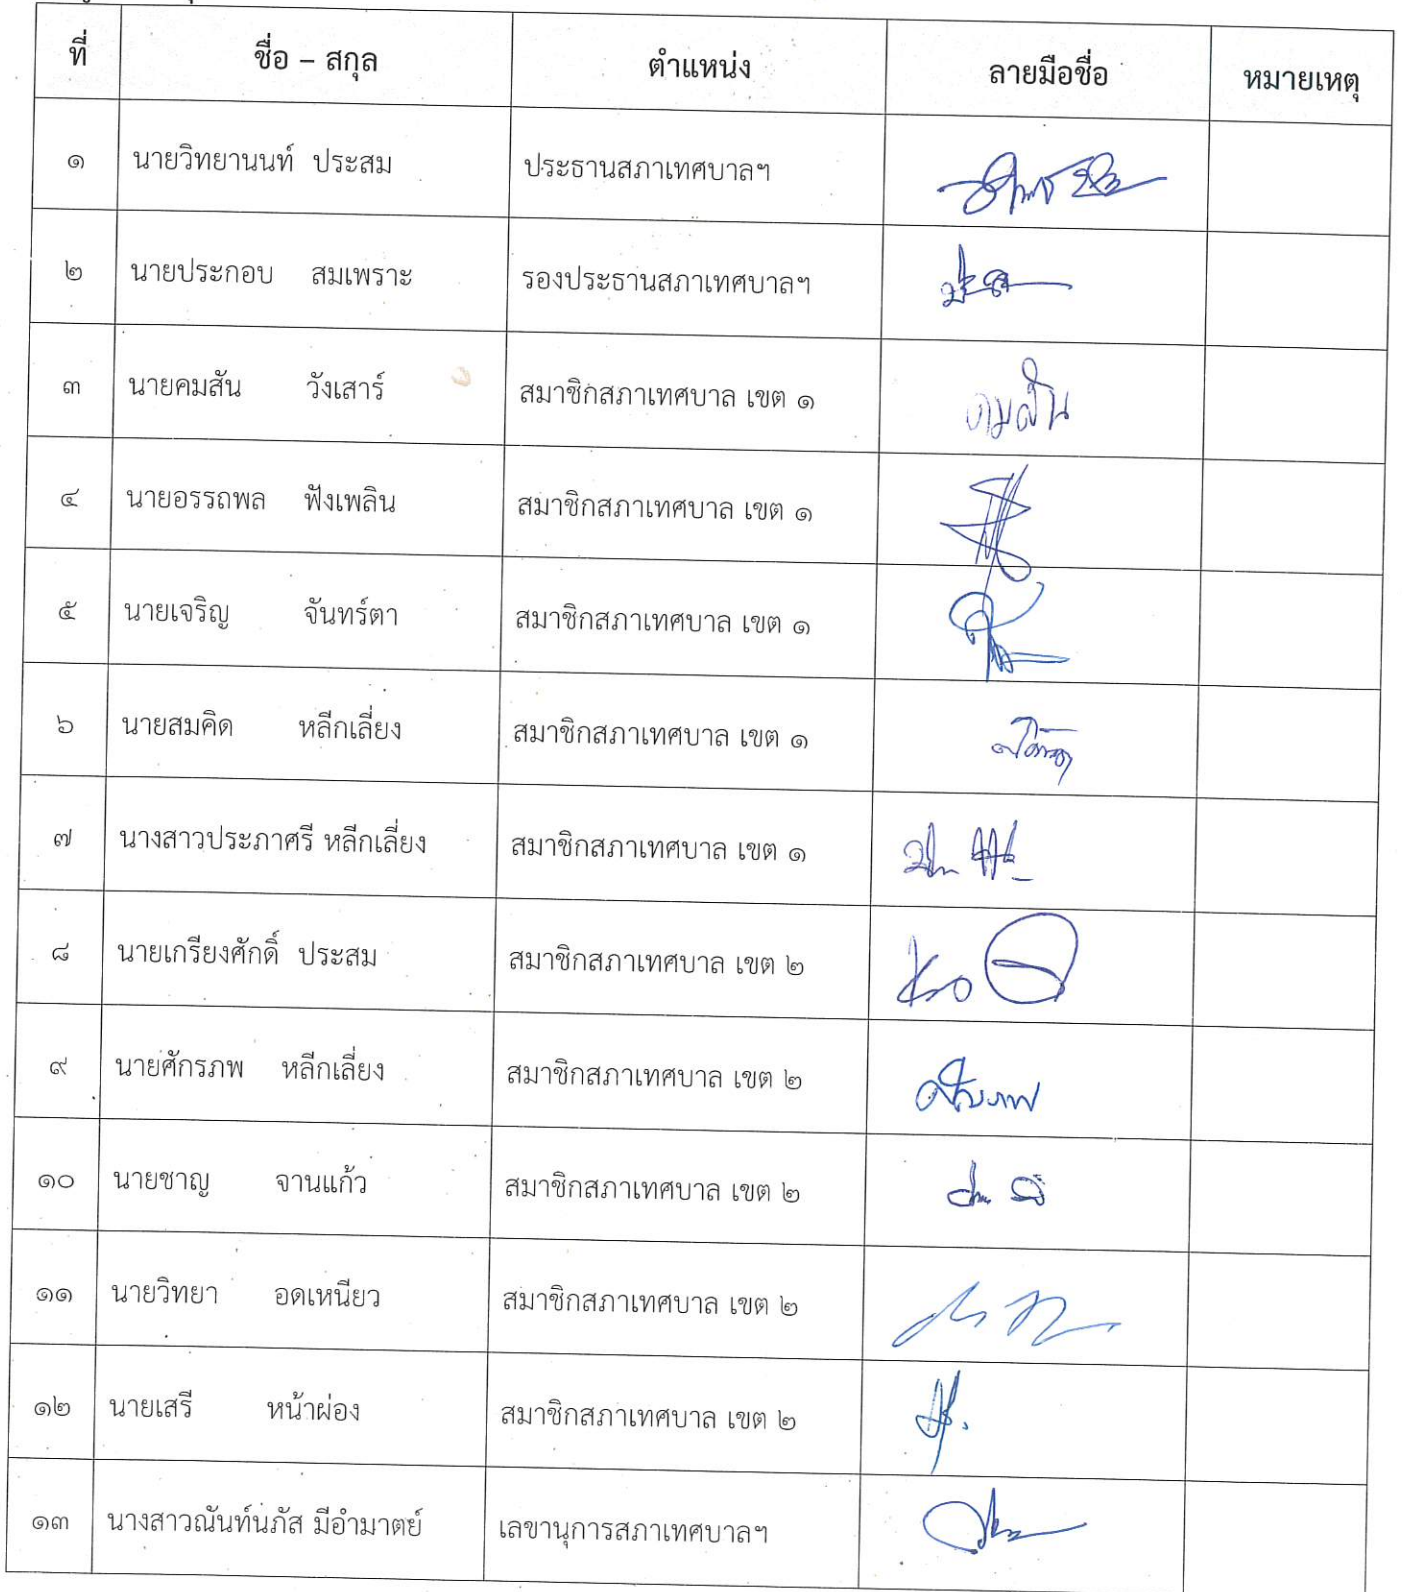 ที่ ชื่อ – สกุล ตำแหน่ง ลายมือชื่อ หมายเหตุ
๑ นายวิทยานนท์ ประสม ประธานสภาเทศบาลฯ
๒ นายประกอบ สมเพราะ รองประธานสภาเทศบาลฯ
๓ นายคมสัน วังเสาร์ สมาชิกสภาเทศบาล เขต ๑ คมสัน
๔ นายอรรถพล ฟังเพลิน สมาชิกสภาเทศบาล เขต ๑
๕ นายเจริญ จันทร์ตา สมาชิกสภาเทศบาล เขต ๑
๖ นายสมคิด หลีกเลี่ยง สมาชิกสภาเทศบาล เขต ๑
๗ นางสาวประภาศรี หลีกเลี่ยง สมาชิกสภาเทศบาล เขต ๑
๘ นายเกรียงศักดิ์ ประสม สมาชิกสภาเทศบาล เขต ๒
๙ นายศักรภพ หลีกเลี่ยง สมาชิกสภาเทศบาล เขต ๒
๑๐ นายชาญ จานแก้ว สมาชิกสภาเทศบาล เขต ๒
๑๑ นายวิทยา อดเหนียว สมาชิกสภาเทศบาล เขต ๒
๑๒ นายเสรี หน้าผ่อง สมาชิกสภาเทศบาล เขต ๒
๑๓ นางสาวณันท์นภัส มีอำมาตย์ เลขานุการสภาเทศบาลฯ